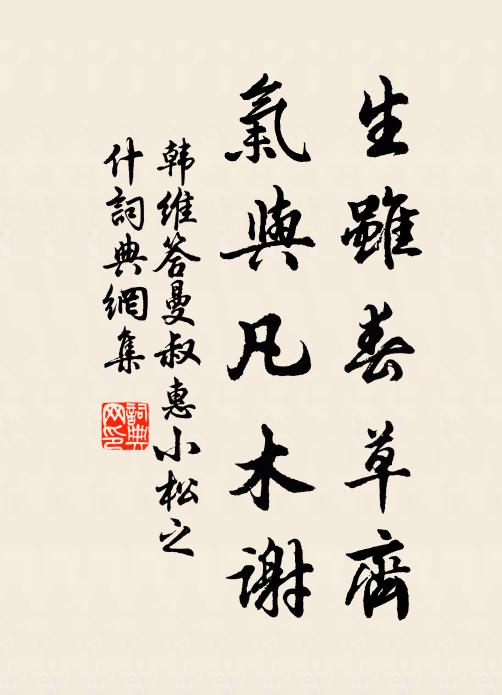 生雖春草齊
氣與凡木谢
韩维答曼叔惠小松之
什詞典網集
詞典网印